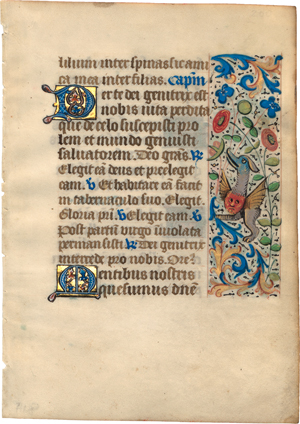 lilium inter spinas sic ami
ca mea inter filias. Capim
Per te dei genitrix est
nobis vita perdita
que de celo suscepisti pro
lem et mundo genuisti
salvatorem. Deo gras. R
Elegit eā deus et preelegit
eam. V Et habitare eā facit
in tabernaculo suo. Elegit
Gloria pri. V Elegit eam. V
Post partū virgo inviolata
permansisti. R Dei genitrix
intercede pro nobis. Ore
Mentibus nostris
quesumus dne